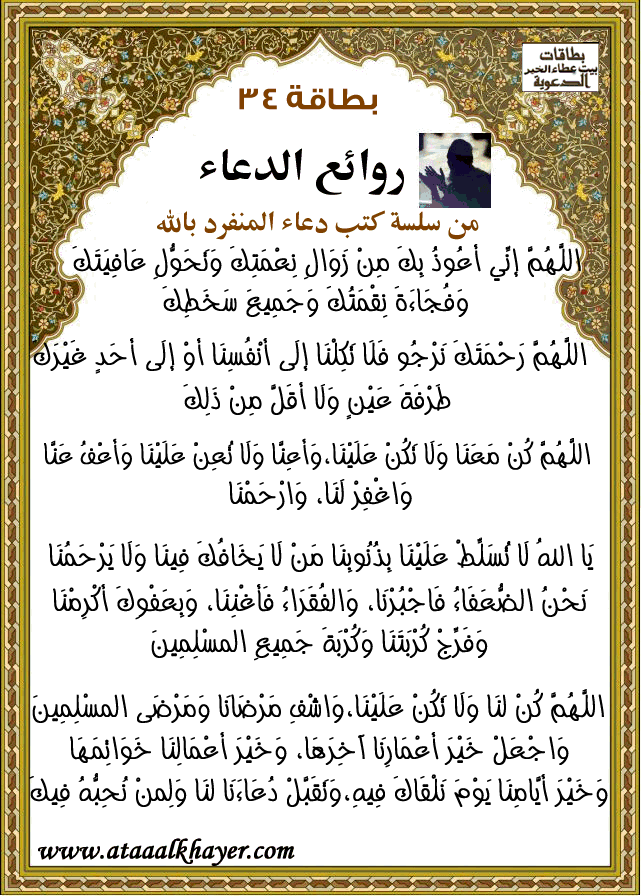 بطاقات
بيت عطاء الخير
الدعوية
بطاقة ٣٤
روائع الدعاء
من سلسة كتب دعاء المنفرد بالله
اللَّهُمَّ إنِّي أعُوذُ بِكَ مِنْ زَوَالِ نِعْمَتِكَ وَتَحَوُّلِ عَافِيَتَكَ
وَفُجَاءَةَ نِقْمَتُكَ وَجَمِيعَ سَخَطِكَ
اللَّهُمَّ رَحْمَتَكَ نَرْجُو فَلَا تَكِلْنَا إلَى أنْفُسِنَا أوْ إلَى أحَدٍ غَيْرَكَ
طَرْفَةَ عَيْنٍ وَلَا أقَلَّ مِنْ ذَلِكَ
اللَّهُمَّ كُنْ مَعَنَا وَلَا تَكُنْ عَلَيْنَا،وَأعِنَّا وَلَا تُعِنْ عَلَيْنَا وَأعْفُ عَنَّا
وَاغْفِرْ لَنَا، وَارْحَمْنَا
يَا اللهُ لَا تُسَلِّطْ عَلَيْنَا بِذُنُوبِنَا مَنْ لَا يَخَافُكَ فِينَا وَلَا يَرْحَمُنَا
نَحْنُ الضُّعَفَاءُ فَاجْبُرْنَا، وَالفُقَرَاءُ فَأغْنِنَا، وَبِعَفْوكَ أكْرِمْنَا
وَفَرِّجْ كُرْبَتَنَا وَكُرْبَةَ جَمِيعِ المسْلِمِينَ
اللَّهُمَّ كُنْ لنَا وَلَا تَكُنْ عَلَيْنَا،وَاشْفِ مَرْضَانَا وَمَرْضَى المسْلِمِينَ
وَاجْعَلْ خَيْرَ أعْمَارِنَا آخِرَهَا، وَخَيْرَ أعْمَالِنَا خَوَائِمَهَا
وَخَيْرَ أيَّامِنَا يَوْمَ نَلْقَاكَ فِيهِ،وَتَقَبَّلْ دُعَاءَنَا لنَا وَلِمنْ نُحِبُّهُ فِيكَ
www.ataaalkhayer.com